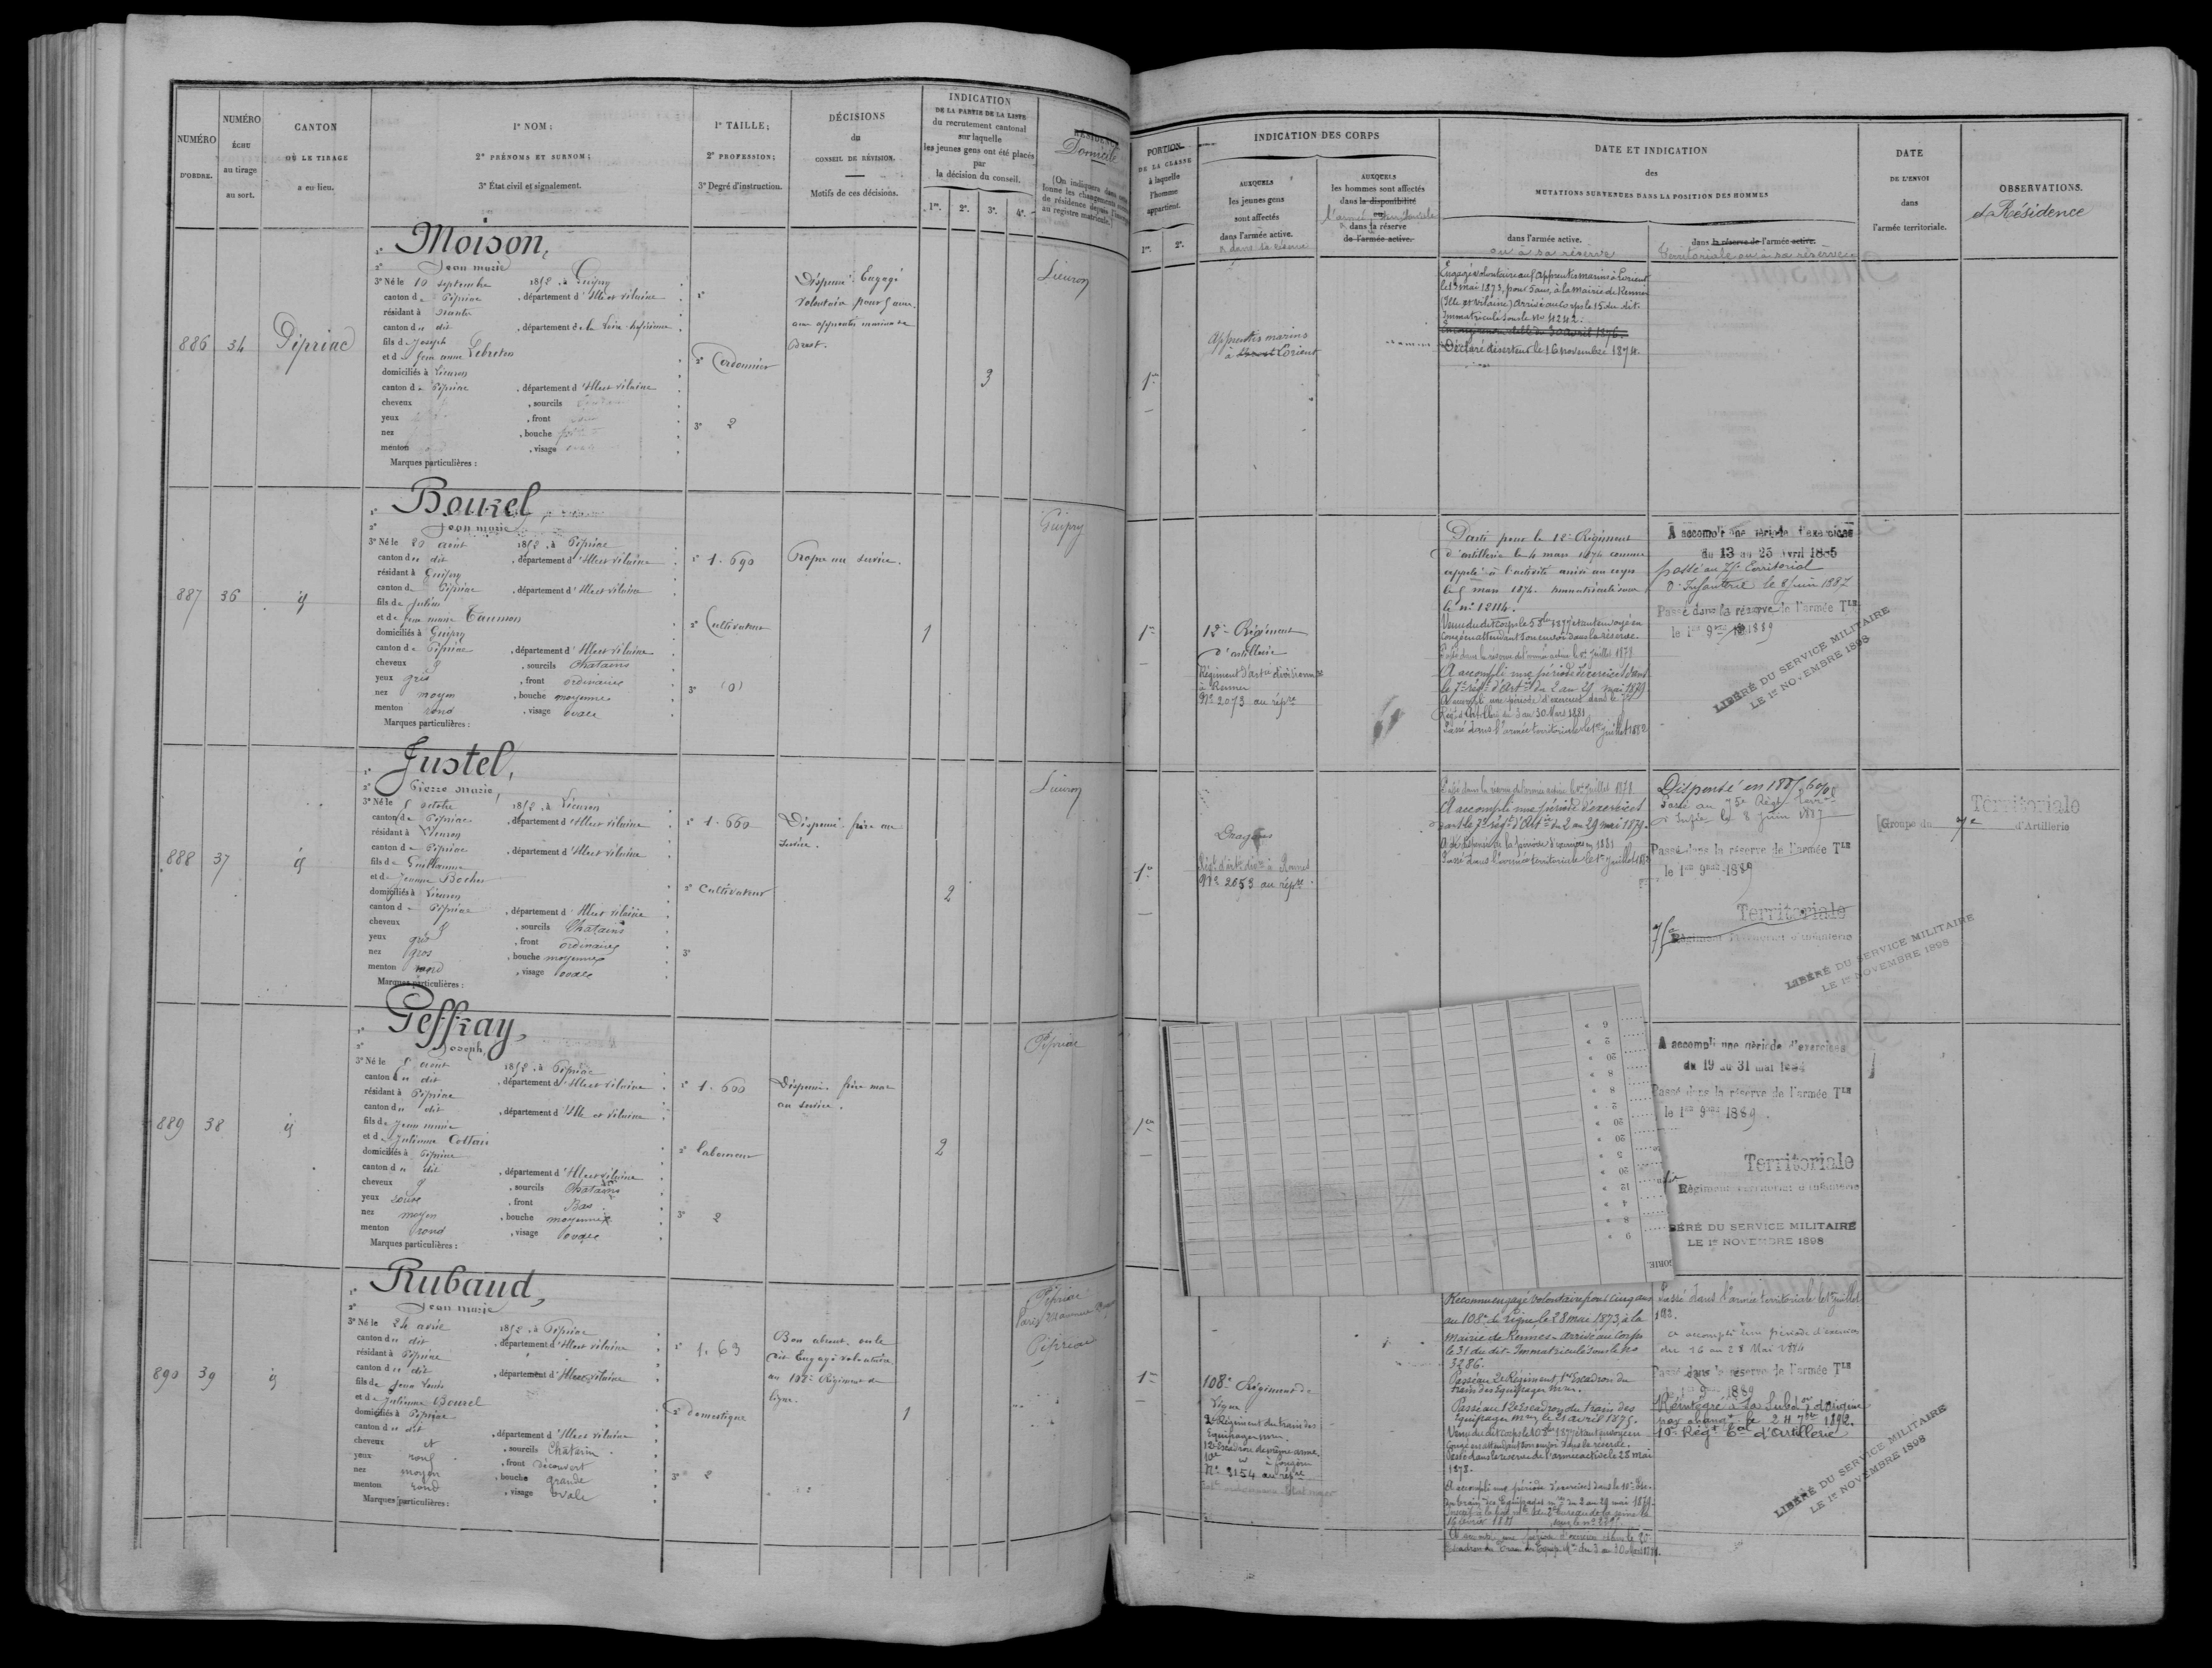 NUMÉRO
D'ORDRE.
NUMÉRO
ÉCHU
au tirage
au sort.
CANTON
OÙ LE TIRAGE
a eu lieu.
1° NOM;
2° PRÉNOMS ET SURNOM;
3° État civil et signalement.
1° TAILLE;
2° PROFESSION;
3° Degré d'instruction.
DÉCISIONS
du
CONSEIL DE RÉVISION.
Motifs de ces décisions.
INDICATION
DE LA PARTIE DE LA LISTE
du recrutement cantonal
sur laquelle
les jeunes gens ont été placés
par
la décision du conseil.
1re. 2e. 3e. 4e.
RÉSIDENCE
Domicile
886 34 Pipriac
1° Moison,
2° Jean marie
3° Né le 10 septembre 1852, à Guipry
canton de Pipriac, département d'Ille et Vilaine
résidant à Nantes
canton du dit, département de la Loire-Inférieure
fils de Joseph
et de Jean anne Lebreton
domiciliés à Lieuron
canton de Pipriac, département d'Ille et Vilaine
cheveux , sourcils
yeux , front
nez , bouche
menton , visage ovale
Marques particulières :
2° Cordonnier
3° 2
Dispensé Engagé
volontaire pour 5 ans
aux apprentis marins de
Brest.
3
Lieuron
887 36 id
1° Bourel,
2° Jean marie
3° Né le 20 août 1852, à Pipriac
canton du dit, département d'Ille et Vilaine
résidant à Guipry
canton de Pipriac, département d'Ille et Vilaine
fils de Julien
et de Jean marie Taumon
domiciliés à Guipry
canton de Pipriac, département d'Ille et Vilaine
cheveux , sourcils Chatains
yeux gris, front ordinaire
nez moyen, bouche moyenne
menton rond, visage ovale
Marques particulières :
1° 1.690
2° Cultivateur
3° (0)
Propre au service.
1
Guipry
888 37 id
1° Justel,
2° Pierre Marie,
3° Né le 5 octobre 1852, à Lieuron
canton de Pipriac, département d'Ille et Vilaine
résidant à Lieuron
canton de Pipriac, département d'Ille et Vilaine
fils de Guillaume
et de Jeanne Bocher
domiciliés à Lieuron
canton de Pipriac, département d'Ille et Vilaine
cheveux , sourcils Chatains
yeux gris, front ordinaire
nez gros, bouche moyenne
menton rond, visage ovale
Marques particulières :
1° 1.660
2° Cultivateur
3°
Dispensé frère au
service.
2
Lieuron
889 38 id
1° Geffray,
2° Joseph,
3° Né le 5 août 1852, à Pipriac
canton du dit, département d'Ille et Vilaine
résidant à Pipriac
canton du dit, département d'Ille et Vilaine
fils de Jean marie
et de Julienne Collais
domiciliés à Pipriac
canton du dit, département d'Ille et Vilaine
cheveux , sourcils Chatains
yeux roux, front Bas
nez moyen, bouche moyenne
menton rond, visage ovale
Marques particulières :
1° 1.600
2° laboureur
3° 2
Dispensé. frère mort
au service.
2
Pipriac
890 39 id
1° Rubaud,
2° Jean marie
3° Né le 24 avril 1852, à Pipriac
canton du dit, département d'Ille et Vilaine
résidant à Pipriac
canton du dit, département d'Ille et Vilaine
fils de Jean Louis
et de Julienne Bourel
domiciliés à Pipriac
canton du dit, département d'Ille et Vilaine
cheveux et, sourcils Chatain
yeux roux, front découvert
nez moyen, bouche grande
menton rond, visage ovale
Marques particulières :
1° 1.63
2° domestique
3° 2
Bon absent. on le
dit Engagé volontaire
au 108e Régiment de
ligne.
1
Pipriac
Pipriac
PORTION
DE LA CLASSE
à laquelle
l'homme
appartient.
1re. 2e.
INDICATION DES CORPS
AUXQUELS
les jeunes gens
sont affectés
dans l'armée active.
& dans la réserve
AUXQUELS
les hommes sont affectés
dans la disponibilité
ou
l'armée territoriale
& dans sa réserve
de l'armée active.
DATE ET INDICATION
des
MUTATIONS SURVENUES DANS LA POSITION DES HOMMES
dans l'armée active.
ou à sa réserve
dans la réserve de l'armée active.
territoriale ou à sa réserve
DATE
DE L'ENVOI
dans
l'armée territoriale.
OBSERVATIONS.
et Résidence
1re
Apprentis marins
à Brest Lorient
Engagé volontaire aux Apprentis marins à Lorient
le 13 mai 1873, pour 5 ans, à la Mairie de Rennes
(Ille et Vilaine) Arrivé au corps le 15 du dit.
Immatriculé sous le No 4242.
Déclaré déserteur le 16 novembre 1874.
1re
12e Régiment
d'artillerie
Régiment d'artie divisionnre
à Rennes
No 2073 au répre
Parti pour le 12e Régiment
d'artillerie le 4 mars 1874 comme
appelé à l'activité arrivé au corps
le 5 mars 1874. immatriculé sous
le no 12114.
Venu du dit corps le 5 8bre 1877 étant envoyé en
congé en attendant son envoi dans la réserve.
Passé dans la réserve de l'armée active le 1er Juillet 1878
A accompli une période d'exercices dans
le 7e régt d'Artie du 2 au 29 mai 1879
A accompli une période d'exercices dans le 7e
Régt d'Artillerie du 3 au 30 Mars 1881
Passé dans l'armée territoriale le 1er juillet 1882
A accompli une période d'exercices
du 13 au 25 Avril 1885
passé au 75e Territorial
d'Infanterie le 8 Juin 1887
Passé dans la réserve de l'armée Tle
le 1er 9bre 1889
LIBÉRÉ DU SERVICE MILITAIRE
LE 1er NOVEMBRE 1898
1re
Dragons
Régt d'artie divre à Rennes
No 2653 au répre
Passé dans la réserve de l'armée active le 1er Juillet 1878
A accompli une période d'exercices
dans le 7e régt d'Artie du 2 au 29 mai 1879.
Passé dans l'armée territoriale le 1er Juillet 1882
Dispensé en 1885
Passé au 75e Régt Terral
d'Infie le 8 Juin 1887
Passé dans la réserve de l'armée Tle
le 1er 9bre 1889
Territoriale
75e Régiment territorial d'infanterie
LIBÉRÉ DU SERVICE MILITAIRE
LE 1er NOVEMBRE 1898
Territoriale
Groupe du 7e d'Artillerie
1re
A accompli une période d'exercices
du 19 au 31 mai 1884
Passé dans la réserve de l'armée Tle
le 1er 9bre 1889
Territoriale
Régiment territorial d'infanterie
BÉRÉ DU SERVICE MILITAIRE
LE 1er NOVEMBRE 1898
1re
108e Régiment de
Ligne
2e Régiment du train des
Equipages mres.
12e Escadron de même arme.
10e à Fougères
No 3154 au répre
Reconnu engagé volontaire pour cinq ans
au 108e de ligne, le 28 mai 1873, à la
Mairie de Rennes. Arrivé au Corps
le 31 du dit. Immatriculé sous le No
3286.
Passé au 2e Régiment, 1er Escadron du
train des Equipages mres.
Passé au 12e Escadron du train des
Equipages mres le 21 avril 1875.
Venu du dit corps le 10 8bre 1877 étant envoyé en
congé en attendant son envoi dans la réserve.
Passé dans la réserve de l'armée active le 28 mai
1878.
A accompli une période d'exercices dans le 10e Esc.
du train des Equipages mres du 2 au 29 mai 1879.
Passé dans l'armée territoriale le 1er Juillet
A accompli une période d'exercices
du 16 au 28 Mai 1884
Passé dans la réserve de l'armée Tle
1889
Réintégré à la Subdon d'origine
par changt le 24 7bre 1892.
10e Régt Tal d'Artillerie
LIBÉRÉ DU SERVICE MILITAIRE
LE 1er NOVEMBRE 1898